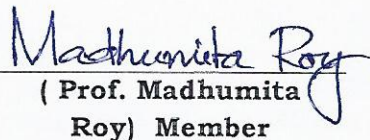 Madhumita Roy
( Prof. Madhumita
Roy) Member